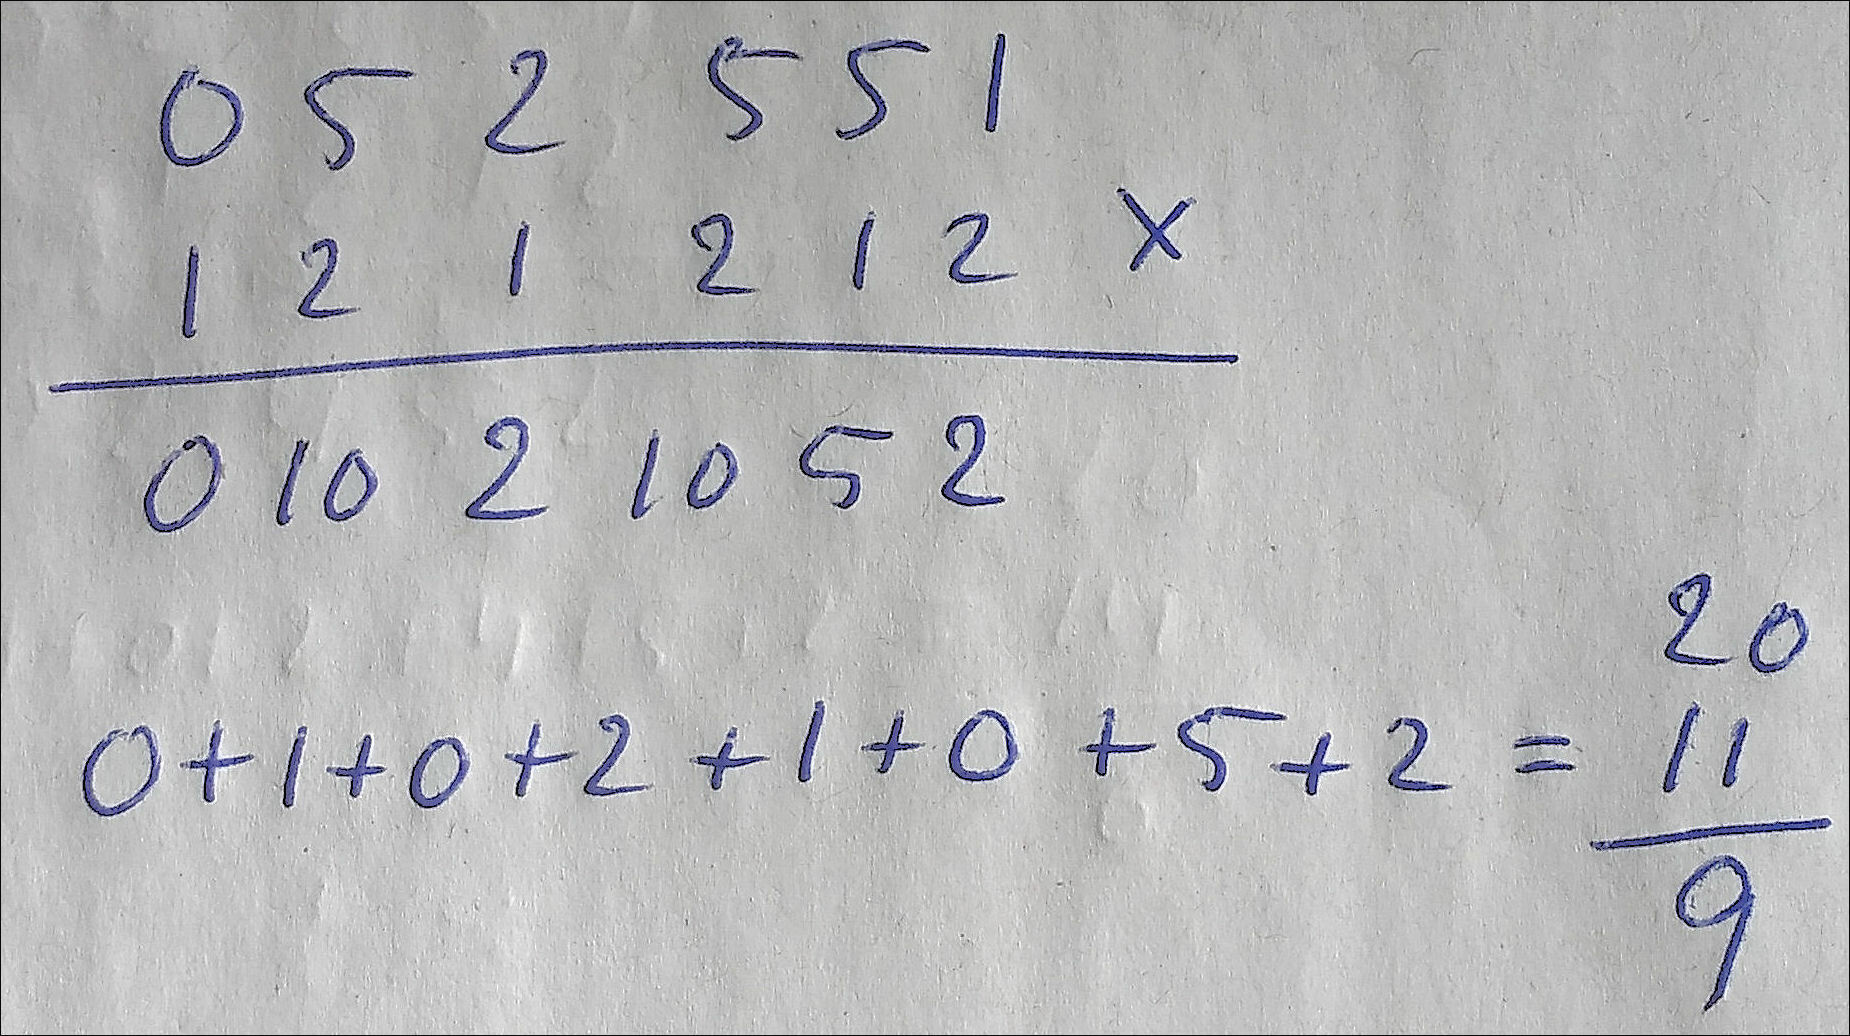 0 5 2 5 5 1
1 2 1 2 1 2 ×
0 10 2 10 5 2
20
0+1+0+2+1+0+5+2 = 11
9